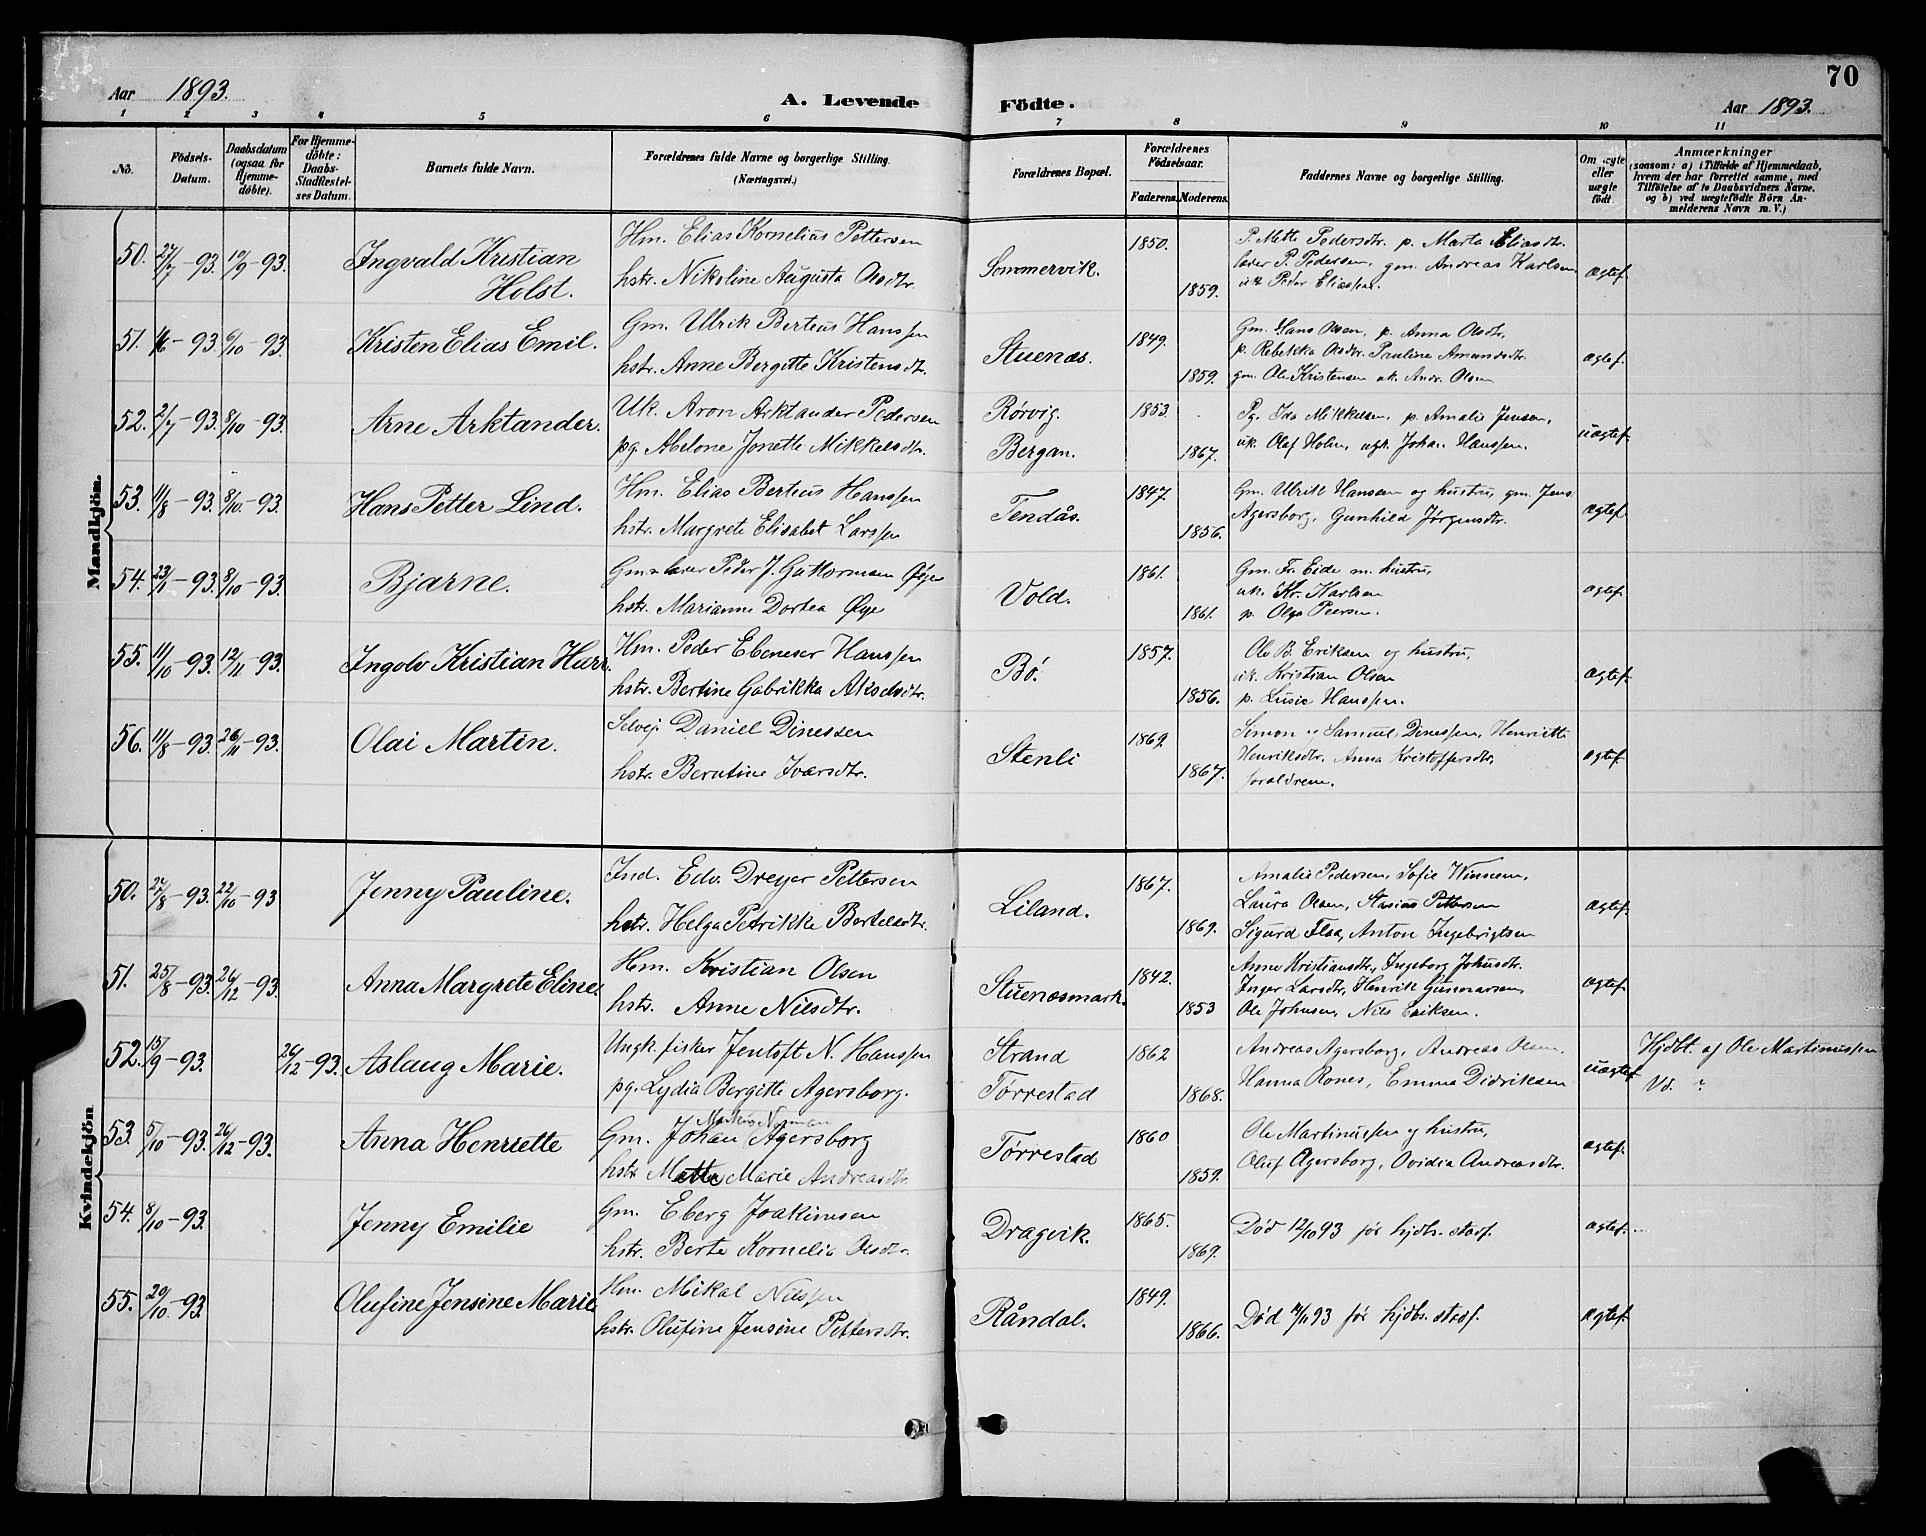 70
Aar 1893. A. Levende Födte. Aar 1893.
1 2 3 4 5 6 7 8 9 10 11
No.
Födsels-
Datum.
Daabsdatum
(ogsaa for
Hjemme-
döbte).
For Hjemme-
döbte:
Daabs-
Stadfæstel-
ses Datum.
Barnets fulde Navn.
Forældrenes fulde Navne og borgerlige Stilling.
(Næringsvei.)
Forældrenes Bopæl.
Forældrenes
Födselsaar.
Faderens. Moderens.
Faddernes Navne og borgerlige Stilling.
Om ægte
eller
uægte
født.
Anmærkninger
(saasom: a) i Tilfælde af Hjemmedaab,
hvem der har forrettet samme, med
Tilföielse af to Daabsvidners Navne.
og b) ved uægtefödte Börn An-
melderens Navn m. V.)
Mandkjön.
50. 27/7-93. 10/9-93. Ingvald Kristian
Holst.
Hm. Elias Kornelius Pettersen
hstr. Nikoline Augusta Olsdtr.
Sommervik. 1850. 1859.
P. Mette Pedersdtr. p. Marta Eliasdtr.
læder P. Pedersen, gm. Andreas Karlsen
uk Peder Eliassen.
ægtef.
51. 1/6-93. 6/10-93. Kristen Elias Emil.
Gm. Ulrik Berteus Hanssen
hstr. Anne Bergitte Kristensdtr.
Stuenæs. 1849. 1859.
Gm. Hans Olsen, p. Anna Olsdtr,
p. Rebekka Olsdtr. Pauline Amundsdtr.
gm. Ole Kristensen uk. Andr. Olsen
ægtef.
52. 2/7-93. 8/10-93. Arne Arktander.
Uk. Aron Arktander Pedersen
pg. Abelone Jonette Mikkelsdtr.
Rørvig.
Bergan. 1853. 1867.
Pg. Ida Mikkelsen, p. Amalie Jensen,
uk. Olaf Holm, ugk. Johan Hanssen.
uægtef.
53. 11/8-93. 8/10-93. Hans Petter Lind.
Hm. Elias Berteus Hanssen
hstr. Margrete Elisabet Larssen
Tendås. 1847. 1856.
Gm. Ulrik Hansen og hustru, gm. Jens
Agersborg, Gunhild Jørgensdtr.
ægtef.
54. 23/1-93. 8/10-93. Bjarne.
Gm. lærer Peder J. Guttormsen Øye
hstr. Marianne Dortea Øye
Vold. 1861. 1861.
Gm. Fr. Eide m. hustru,
uk. Kr. Karlsen
p. Olga Peersen.
ægtef.
55. 11/10-93. 12/11-93. Ingolv Kristian Harr.
Hm. Peder Ebeneser Hanssen
hstr. Bertine Gabrikka Akselsdtr.
Bø. 1857. 1856.
Ole B. Eriksen og hustru,
uk. Kristian Olsen
p. Lusie Hanssen.
ægtef.
56. 11/8-93. 26/11-93. Olai Martin.
Selvej. Daniel Dinessen
hstr. Berntine Ivarsdtr.
Stenli 1869. 1867.
Simon og Samuel Dinessen, Henriette
Henriksdtr. Anna Kristoffersdtr,
forældrene.
ægtef.
Kvindekjön
50. 27/8-93. 22/10-93 Jenny Pauline.
Ind. Edv. Dreyer Pettersen
hstr. Helga Petrikke Bertelsdtr.
Liland. 1867. 1869.
Amalie Pedersen, Sofie Winnem,
Laura Olsen, Stasius Pettersen
Sigurd Flaa, Anton Ingebrigtsen
ægtef.
51. 25/8-93. 26/12-93. Anna Margrete Eline.
Hm. Kristian Olsen
hstr. Anne Nilsdtr.
Stuenæsmark. 1842. 1853
Anne Kristiansdtr, Ingeborg Johnsdtr.
Inger Larsdtr, Henrik Gunnarsen,
Ole Johnsen, Nils Eriksen.
ægtef.
52. 15/9-93. 26/12-93. Aslaug Marie.
Ungk. fisker Jentoft N. Hanssen
pg. Lydia Bergitte Agersborg.
Strand
Tørrestad 1862 1868.
Andreas Agersborg, Andreas Olsen,
Hanna Rones, Emma Didriksen
uægtef.
Hjdbt. af Ole Martinussen
Vd. ?
53. 5/10-93. 26/12-93. Anna Henriette
Gm. Johan Markus Norman Agersborg
hstr Mette Marie Andreasdtr.
Tørrestad 1860 1859.
Ole Martinussen og hustru,
Oluf Agersborg, Ovidia Andreasdtr.
ægtef.
54. 8/10-93. Jenny Emilie
Gm. Eberg Joakimsen
hstr. Berte Kornelia Olsdtr.
Dragvik. 1865. 1869.
Død 12/10 93 før hjdbs. stadf.
ægtef.
55. 20/10-93. Olufine Jensine Marie
Hm. Mikal Nilssen
hstr. Olufine Jensine Pettersdtr.
Råndal. 1849. 1866.
Død 14/11 93 før hjdbs. stadf.
ægtef.